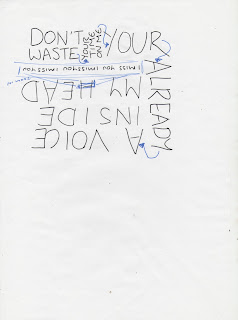 DON'T
WASTE
YOUR
TIME
ON ME
YOUR
ALREADY
A VOICE
INSIDE
MY HEAD
I MISS YOU I MISS YOU